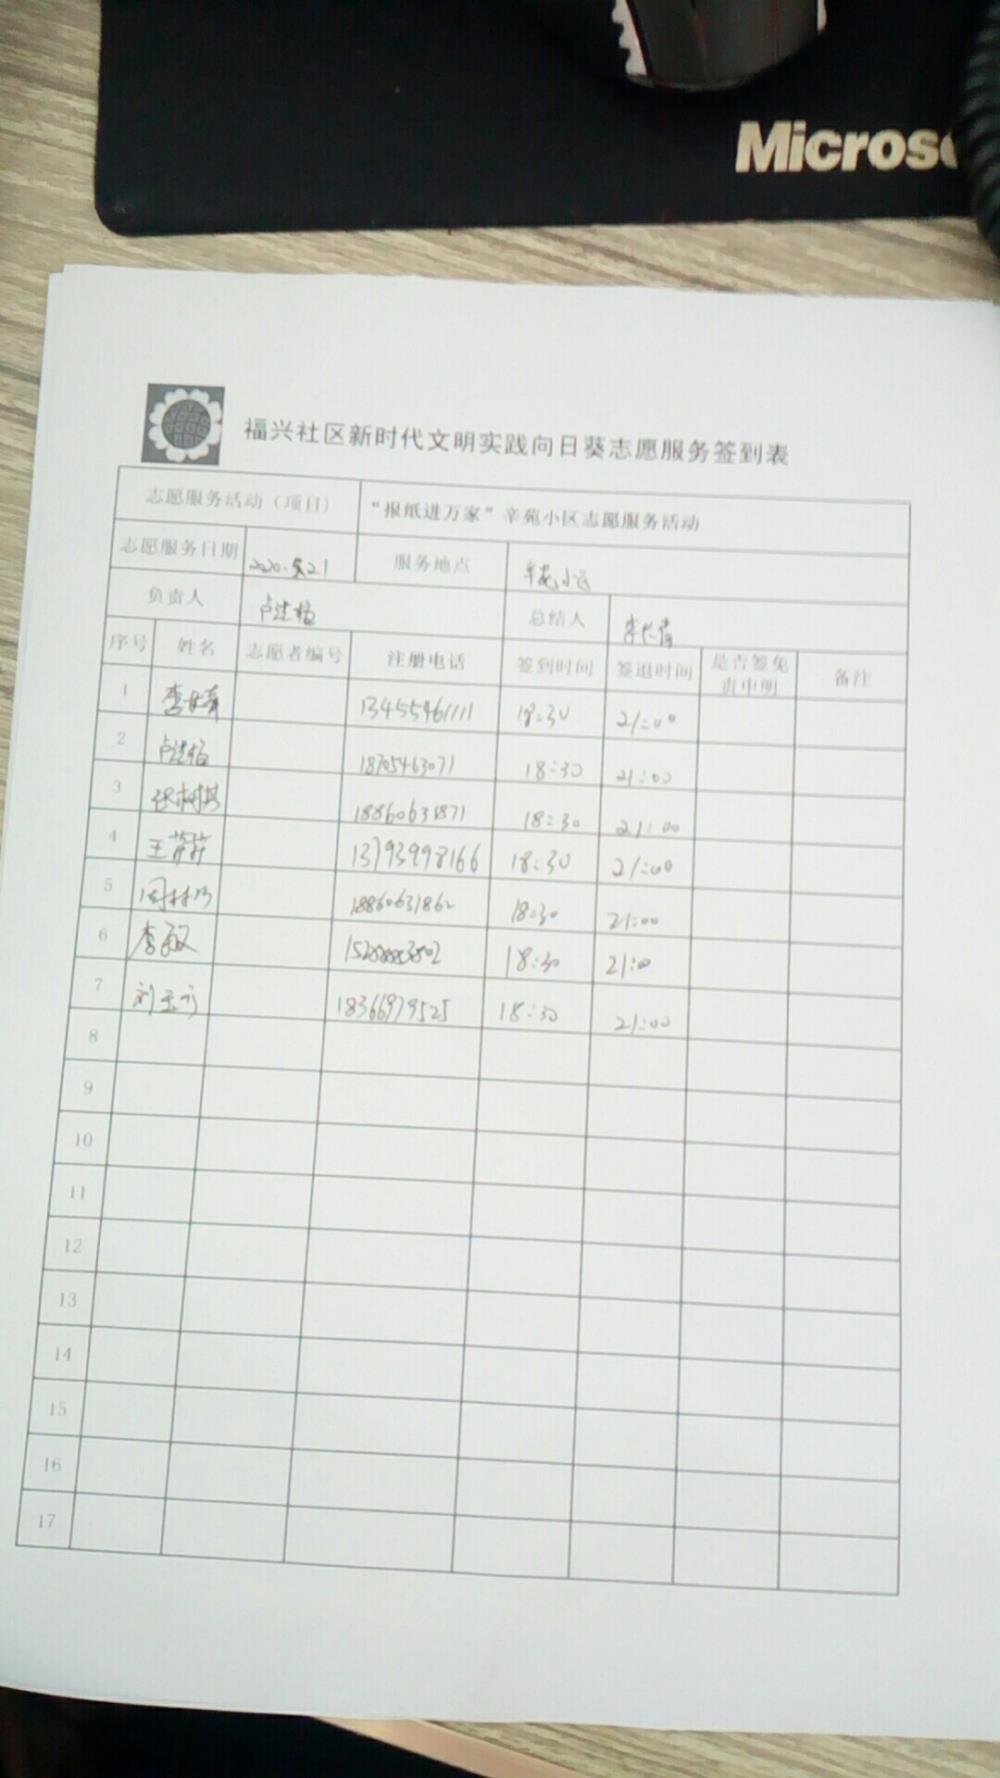 Microso
福兴社区新时代文明实践向日葵志愿服务签到表
志愿服务活动（项目） “报纸进万家”辛苑小区志愿服务活动
志愿服务日期 2020.5.21 服务地点 辛苑小区
负责人 总结人
序号 姓名 志愿者编号 注册电话 签到时间 签退时间 是否签免责申明 备注
1 13455461111 18:30 21:00
2 18705463071 18:30 21:00
3 18860631871 18:30 21:00
4 王莎莎 13793998166 18:30 21:00
5 18860631862 18:30 21:00
6 李敏 18:30 21:00
7 18366979525 18:30 21:00
8
9
10
11
12
13
14
15
16
17